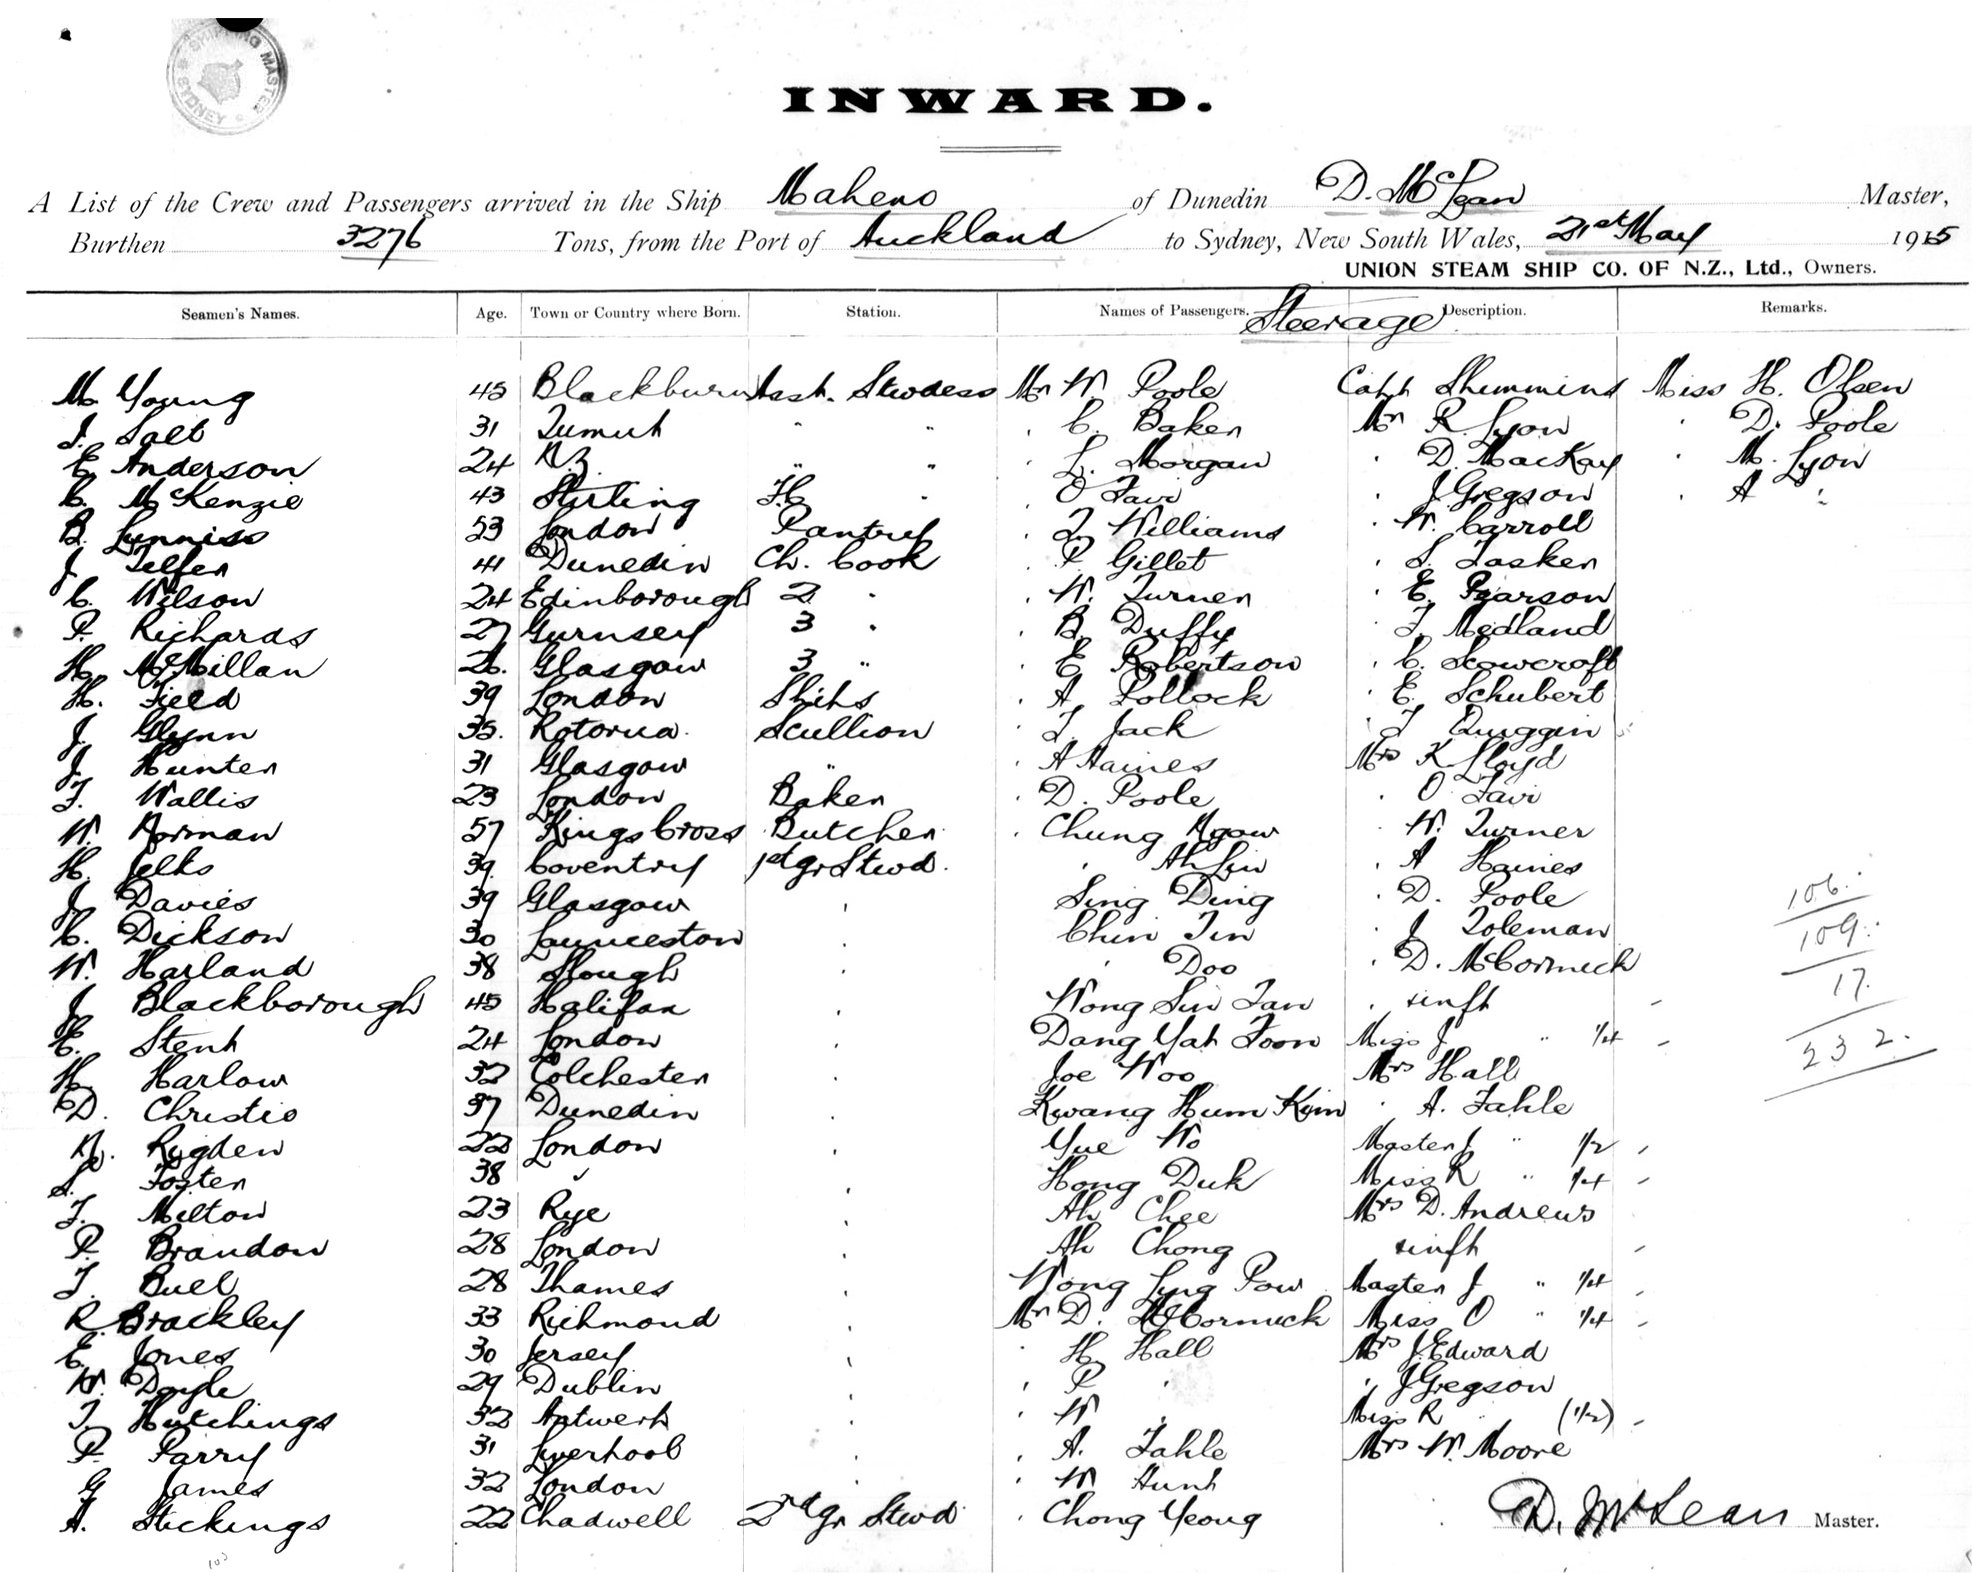 SHIPPING MASTER SYDNEY
INWARD.
A List of the Crew and Passengers arrived in the Ship Maheno of Dunedin D. McLean Master,
Burthen 3276 Tons, from the Port of Auckland to Sydney, New South Wales, 21st May 1915
UNION STEAM SHIP CO. OF N.Z., Ltd., Owners.
Seamen's Names. Age. Town or Country where Born. Station. Names of Passengers. Steerage Description. Remarks.
M Young 45 Blackburn Asst. Stwdess Mr W. Poole Capt Shimmins Miss H. Olsen
J. Salt 31 Tumut " " " C. Baker Mr R. Lyon " D. Poole
E. Anderson 24 N.Z. " " " L. Morgan " D. MacKay " M. Lyon
C. McKenzie 43 Stirling F.C. " " O Tavi " J. Gregson " A "
B. Lynniss 53 London Pantry " T. Williams " W. Carroll
J. Telfer 41 Dunedin Ch. Cook " P Gillet " S. Tasker
C. Wilson 24 Edinborough 2 " " W. Turner " E. Pearson
P. Richards 27 Gurnsey 3 " " B. Duffy " T. Medland
H. McMillan 26. Glasgow 3 " " E Robertson " C. Scowcroft
H. Field 39 London Ships " A Pollock " E. Schubert
J. Glynn 35. Rotorua. Scullion " T. Jack " T Quiggin
J. Hunter 31 Glasgow " " A Haines Mrs K Lloyd
F. Wallis 23 London Baker " D. Poole " O Tavi
W. Norman 57 Kings Cross Butcher " Chung Ngow " W. Turner
H. Jelks 39. Coventry 1st gr Stwd. " Ah Lin " A Haines
J. Davies 39 Glasgow " Sing Ding " D. Poole 106.
C. Dickson 30 Launceston " Chin Tin " J Toleman 109.
W. Harland 38 Slough " " Doo " D. McCormick 17.
J Blackborough 45 Halifax " Wong Sin Tan " & inft
E. Stent 24 London " Dang Yah Toon Miss J " 1/4 232.
H. Harlow 32 Colchester " Joe Woo Mrs Hall
D. Christie 37 Dunedin " Kwang Hum Kum " A. Fahle
N. Rigden 22 London " Yue Wo Master J " 1/2
S. Foster 38 " " Hong Duk Miss R " 1/4
F. Milton 23 Rye " Ah Chee Mrs D. Andrews
P. Brandon 28 London " Ah Chong & inft
T. Buel 28 Thames " Wong Ling Pow Master J " 1/4
R. Brackley 33 Richmond " Mr D. McCormick Miss O " 1/4
E. Jones 30 Jersey " " H. Hall Mrs J. Edward
W. Doyle 29 Dublin " " P " " J Gregson
T. Hutchings 32 Antwerp " " W " Miss R " (1/2)
P. Parry 31 Liverpool " " A. Fahle Mrs W. Moore
G James 32 London " " W Hunt
A. Stickings 22 Chadwell 2nd gr Stwd. " Chong Yeong D. McLean Master.